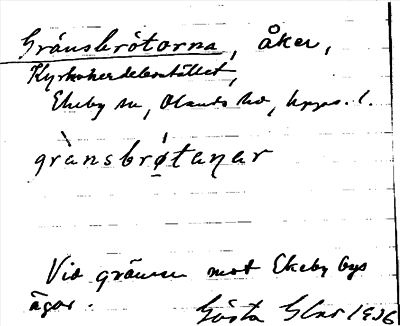 Gränsbrötarna, åker,
Kyrkoherdebostället,
Ekeby sn, Olands hd, Upps. l.
grànsbrø̀tanar
Vid gränsen mot Ekeby bys
ägor.
Gösta 1936